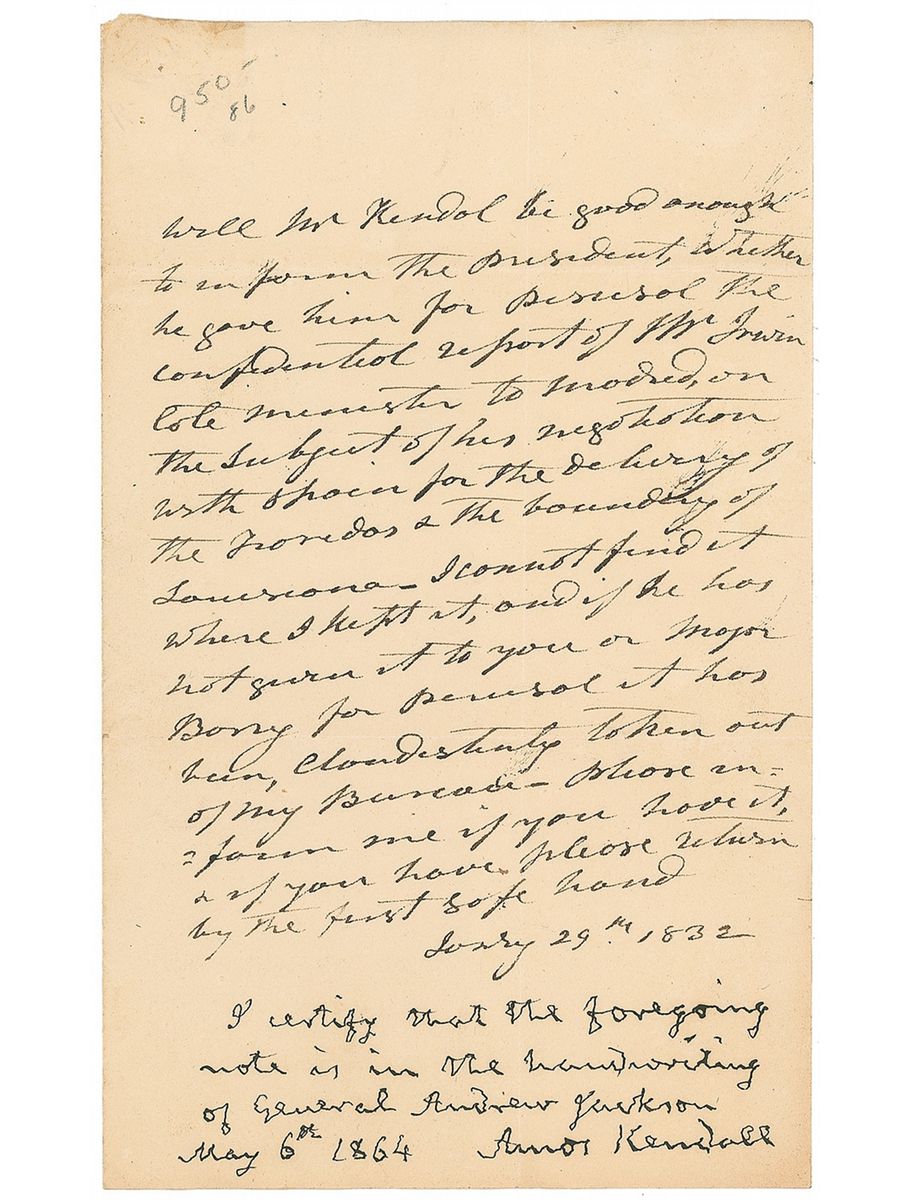 950-
86
Will Mr Kendol be good enough
to inform the president, Whether
he gave him for perusol the
confidential report of Mr Irwin
late minister to modred, on
the subject of his negotiation
with Spain for the delivery of
the Floredas & the boundry of
Louisiana- I cannot find it
where I kept it, and if he has
not given it to you or Major
Barry for perusol it has
been, Clandestenly taken out
of my Bureau- please in=
=form me if you have it,
& if you have please return
by the first safe hand
Janry 29th 1832
I certify that the foregoing
note is in the handwriting
of General Andrew Jackson
May 6th 1864 Amos Kendall